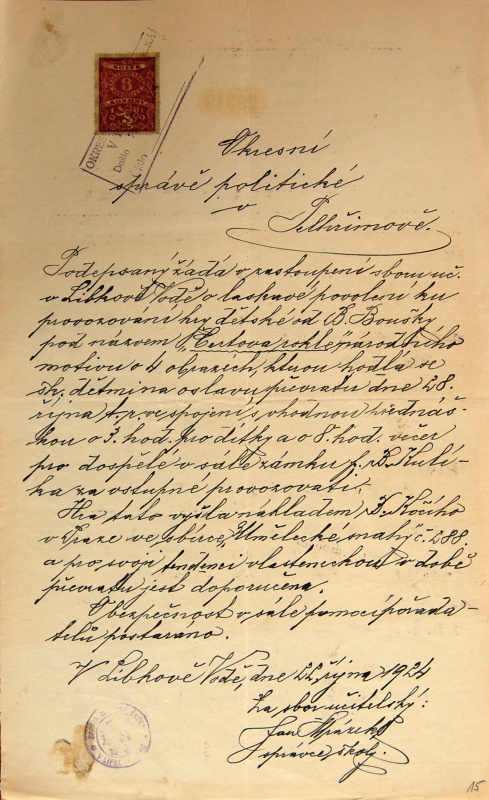 KOLEK
8
KORUNY
OKRES
Došlo
Číslo
Okresní
správě politické
v Pelhřimově.
Podepsaný žádá v zastoupení sboru uč.
v Libkově Vodě o laskavé povolení ku
provozování hry dětské od B. Boušky
pod názvem „Čertova rokle národního
motivu o 4 obrazích, kterou hodlá se
šk. dětmi na oslavu převratu dne 28.
října t. r. ve spojení s vhodnou přednáš-
kou o 3. hod. pro dítky a o 8. hod. večer
pro dospělé v sále zámku p. B. Kulí-
ka za vstupné provozovati.
Hra tato vyšla nákladem B. Kočího
v Praze ve sbírce „Umělecké snahy č. 288
a pro svoji tendenci vlasteneckou v době
převratu jest doporučena.
O bezpečnost v sále pomocí pořada-
telů postaráno.
V Libkově Vodě, dne 22. října 1924
Za sbor učitelský:
Jan
správce školy.
15